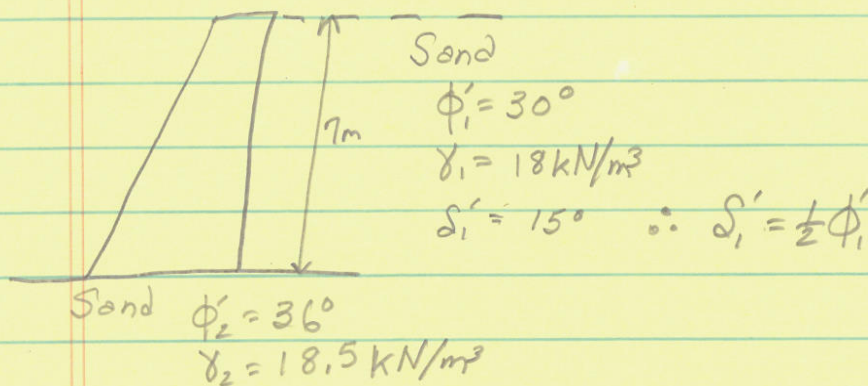 Sand
ϕ₁' = 30°
7m
γ₁ = 18 kN/m³
δ₁' = 15° ∴ δ₁' = ½ ϕ₁'
Sand ϕ₂' = 36°
γ₂ = 18.5 kN/m³